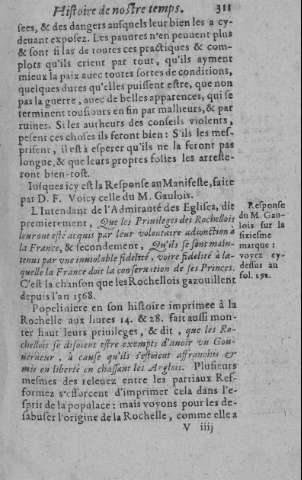 Histoire de nostre temps. 311
sees, & des dangers ausquels leur bien les a cy-
deuant exposez. Les pauures n'en peuuent plus
& sont si las de toutes ces practiques & com-
plots qu'ils crient par tout, qu'ils ayment
mieux la paix auec toutes sortes de conditions,
quelques dures qu'elles puissent estre, que non
pas la guerre, auec de belles apparences, qui se
terminent tousiours en fin par malheurs, & par
ruines. Si les autheurs des conseils violents,
pesent ces choses ils feront bien: S'ils les mes-
prisent, il est à esperer qu'ils ne la feront pas
longue, & que leurs propres folies les arreste-
ront bien-tost.
Iusques icy est la Response au Manifeste, faite
par D. F. Voicy celle du M. Gaulois.
L'Intendant de l'Admirauté des Eglises, dit
premierement, Que les Priuileges des Rochellois
leur ont esté acquis par leur voluntaire adionction à
la France, & secondement, Qu'ils se sont main-
tenus par vne inuiolable fidelité, voire fidelité à la-
quelle la France doit la conseruation de ses Princes.
C'est la chanson que les Rochellois gazouillent
depuis l'an 1568.
Response
du M. Gau-
lois sur la
sixiesme
marque :
voyez cy-
dessus au
fol. 192.
Popeliniere en son histoire imprimee à la
Rochelle aux liures 14. & 28. fait aussi mon-
ter haut leurs priuileges, & dit, que les Ro-
chellois se disoient estre exempts d'auoir vn Gou-
uerneur, à cause qu'ils s'estoient affranchis &
mis en liberté en chassant les Anglois. Plusieurs
mesmes des releuez entre les partiaux Ref-
formez s'efforcent d'imprimer cela dans l'e-
sprit de la populace : mais voyons pour les de-
sabuser l'origine de la Rochelle, comme elle a
V iiij